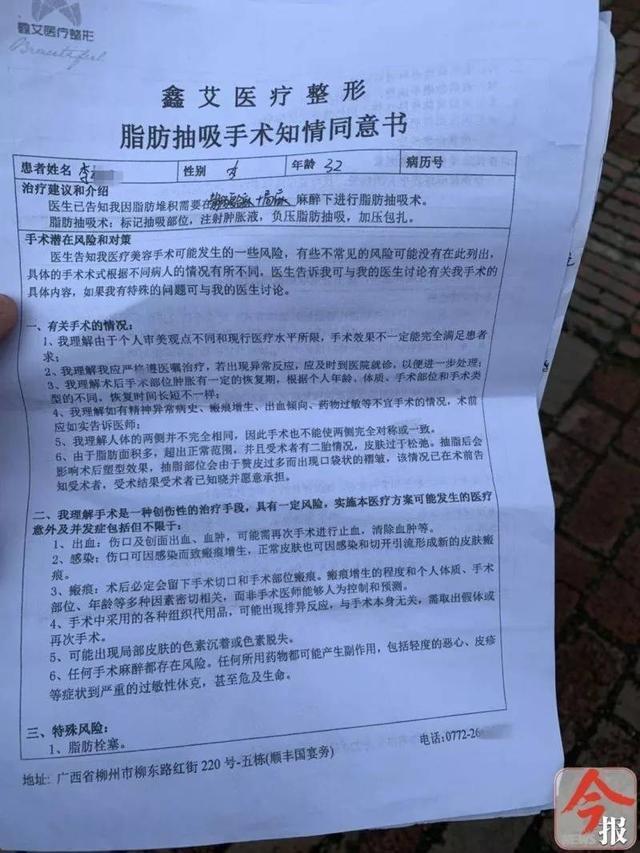 鑫艾医疗整形
Beautiful
鑫艾医疗整形
脂肪抽吸手术知情同意书
患者姓名 李 性别 女 年龄 32 病历号
治疗建议和介绍
医生已告知我因脂肪堆积需要在 麻醉下进行脂肪抽吸术。
脂肪抽吸术：标记抽吸部位，注射肿胀液，负压脂肪抽吸，加压包扎。
手术潜在风险和对策
医生告知我医疗美容手术可能发生的一些风险，有些不常见的风险可能没有在此列出，
具体的手术术式根据不同病人的情况有所不同。医生告诉我可与我的医生讨论有关我手术的
具体内容，如果我有特殊的问题可与我的医生讨论。
一、有关手术的情况：
1、我理解由于个人审美观点不同和现行医疗水平所限，手术效果不一定能完全满足患者
求；
2、我理解我应严格遵医嘱治疗，若出现异常反应，应及时到医院就诊，以便进一步处理；
3、我理解术后手术部位肿胀有一定的恢复期，根据个人年龄、体质、手术部位和手术类
型的不同，恢复时间长短不一样；
4、我理解如有精神异常病史、瘢痕增生、出血倾向、药物过敏等不宜手术的情况，术前
应如实告诉医师；
5、我理解人体的两侧并不完全相同，因此手术也不能使两侧完全对称或一致。
6、由于脂肪面积多，超出正常范围，并且受术者有二胎情况，皮肤过于松弛。抽脂后会
影响术后塑型效果，抽脂部位会由于赘皮过多而出现口袋状的褶皱，该情况已在术前告
知受术者，受术结果受术者已知晓并愿意承担。
二、我理解手术是一种创伤性的治疗手段，具有一定风险，实施本医疗方案可能发生的医疗
意外及并发症包括但不限于：
1、出血：伤口及创面出血、血肿，可能需再次手术进行止血，清除血肿等。
2、感染：伤口可因感染而致瘢痕增生，正常皮肤也可因感染和切开引流形成新的皮肤瘢
痕。
3、瘢痕：术后必定会留下手术切口和手术部位瘢痕。瘢痕增生的程度和个人体质、手术
部位、年龄等多种因素密切相关，而非手术医师能够人为控制和预测。
4、手术中采用的各种组织代用品，可能出现排异反应，与手术本身无关，需取出假体或
再次手术。
5、可能出现局部皮肤的色素沉着或色素脱失。
6、任何手术麻醉都存在风险。任何所用药物都可能产生副作用，包括轻度的恶心、皮疹
等症状到严重的过敏性休克，甚至危及生命。
三、特殊风险：
1、脂肪栓塞。
电话:0772-26
地址：广西省柳州市柳东路红街 220 号-五栋(顺丰国宴旁)
今报
NEWS